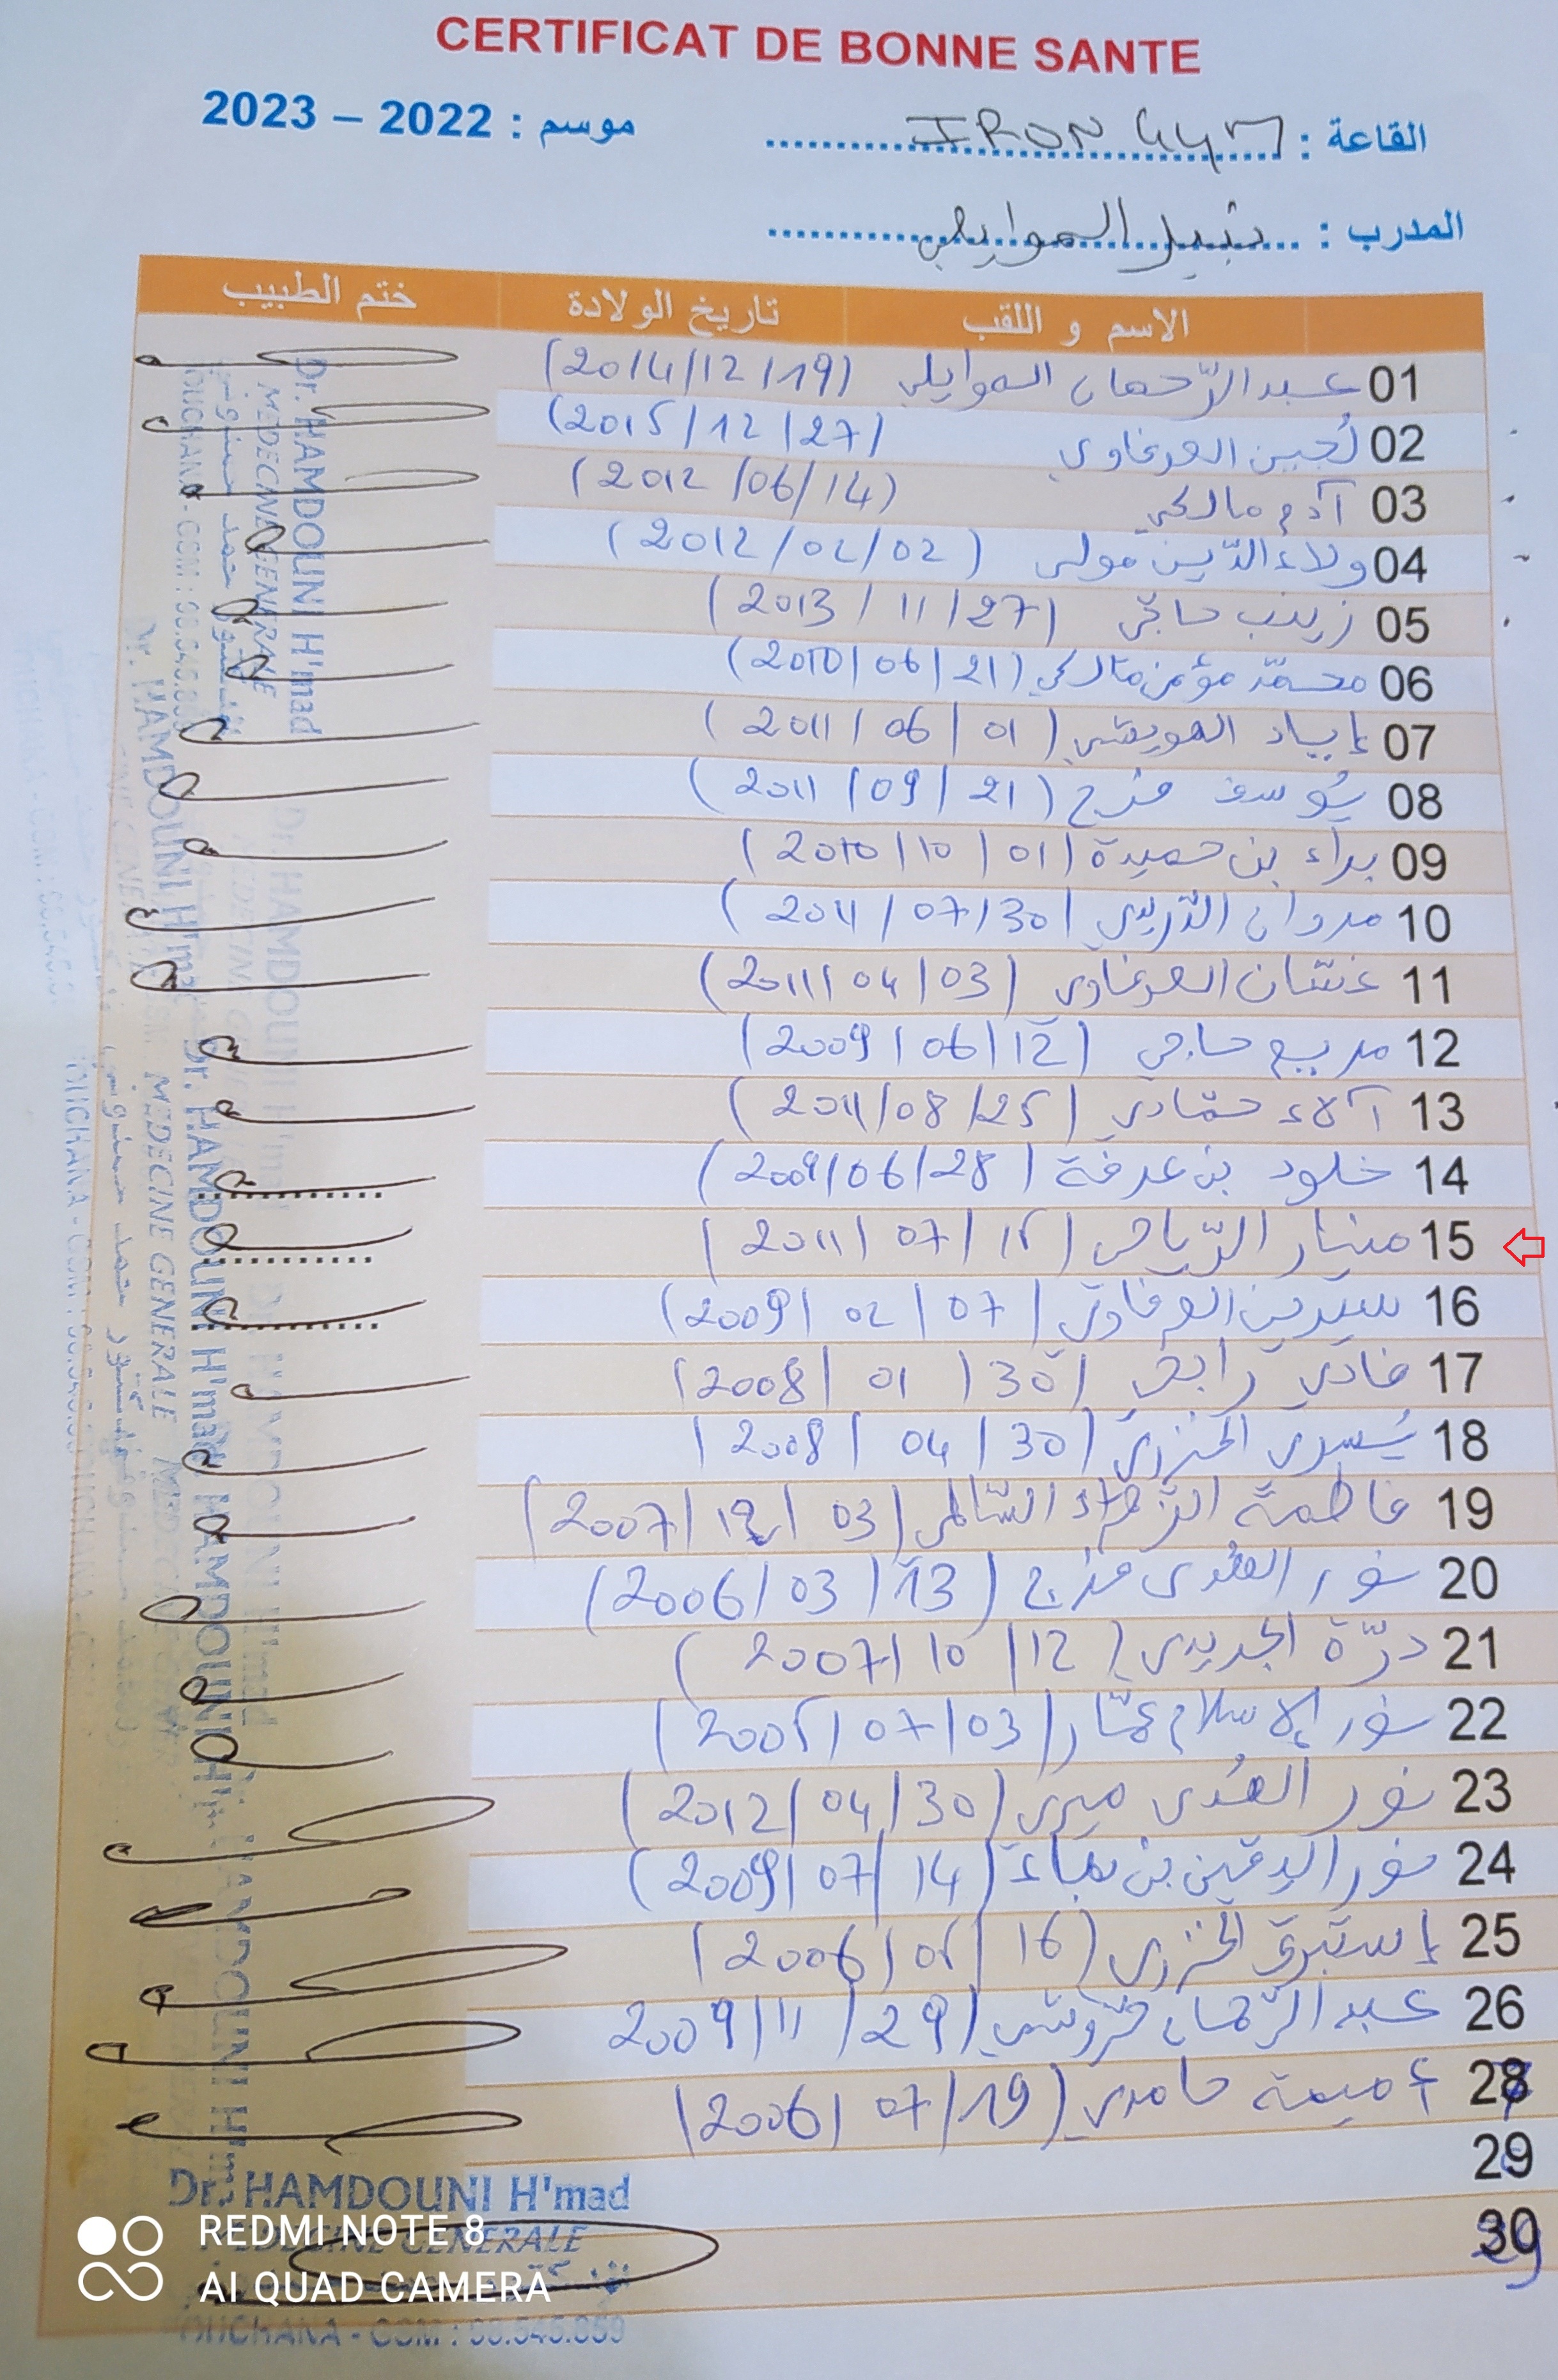 CERTIFICAT DE BONNE SANTE
موسم : 2022 – 2023
القاعة : IRON GYM
المدرب : نبيل السوايلي
الاسم و اللقب تاريخ الولادة ختم الطبيب
01 عبد الرّحمان السوايلي (2014/12/19)
02 لُجين العرفاوي (2015/12/27)
03 آدم مالكي (2012/06/14)
04 ولاء الدّين مولى (2012/02/02)
05 زينب حاجّي (2013/11/27)
06 محمّد مؤمن مالكي (2010/06/21)
07 إياد العويشي (2011/06/01)
08 يُوسف فرج (2011/09/21)
09 براء بن حميدة (2010/10/01)
10 مروان الدّريدي (2011/07/30)
11 غسّان العرفاوي (2011/04/03)
12 مريم حاجي (2009/06/12)
13 آلاء حمّادي (2011/08/25)
14 خلود بن عرفة (2009/06/28)
15 منار الرّياحي (2011/07/15)
16 سيرين العرفاوي (2009/02/07)
17 فادي رابحي (2008/01/30)
18 يُسرى الخزري (2008/04/30)
19 فاطمة الزّهراء السّالمي (2007/12/03)
20 نور الهُدى فرج (2006/03/13)
21 درّة الجديدي (2007/10/12)
22 نور الإسلام عمّار (2005/07/03)
23 نور الهُدى ميري (2012/04/30)
24 نور اليقين بن (2009/07/14)
25 إستبرق الخزري (2006/05/16)
26 عبد الرّحمان (2009/11/29
28 أميمة حامدي (2006/07/19)
29
30
Dr. HAMDOUNI H'mad
MEDECINE GENERALE
Dr. HAMDOUNI H'mad
MEDECINE GENERALE
REDMI NOTE 8
AI QUAD CAMERA